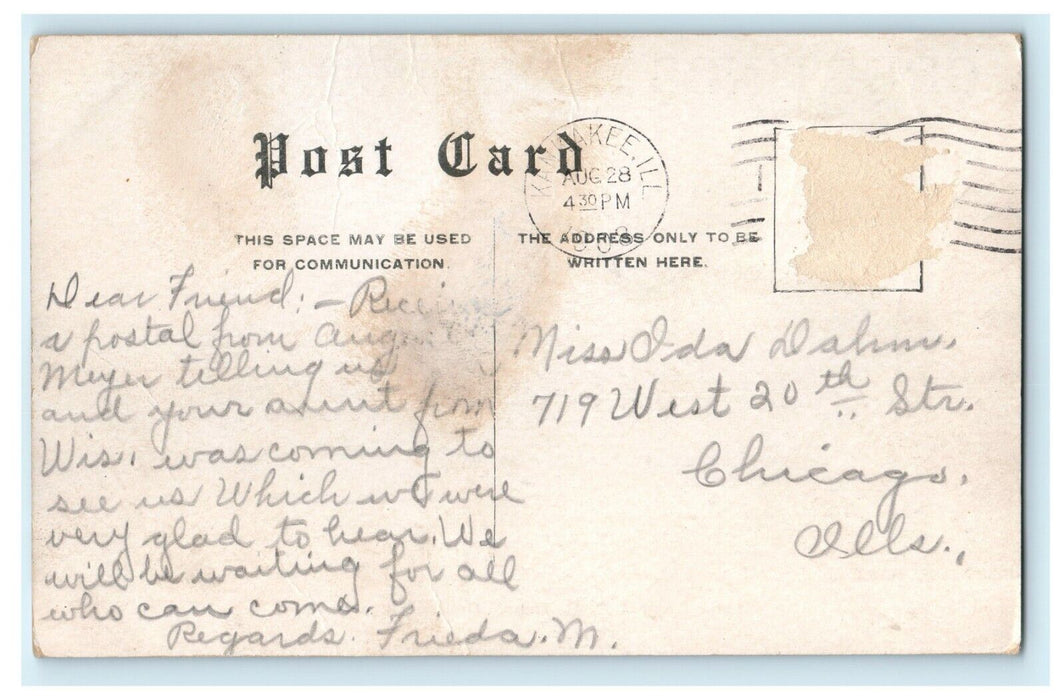 Post Card
KANKAKEE, ILL
AUG 28
4 30 PM
THIS SPACE MAY BE USED
FOR COMMUNICATION.
THE ADDRESS ONLY TO BE
WRITTEN HERE.
Dear Friend:—
a postal from
Meyer telling us
and your aunt from
Wis. was coming to
see us Which we were
very glad to hear. We
will be waiting for all
who can come.
Regards. Frieda. M.
Miss Ida Dahm.
719 West 20th Str.
Chicago.
Ills.,